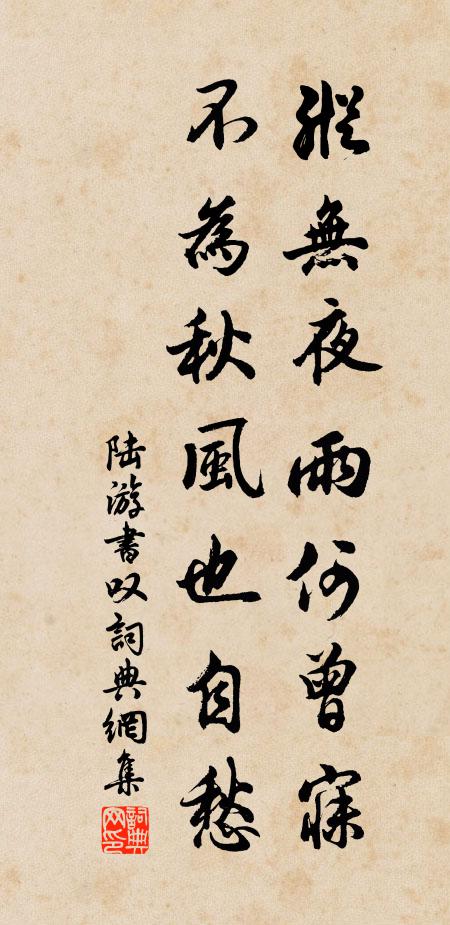 縱無夜雨何曾寐
不為秋風也自愁
陸游書叹詞典網集
詞典网印